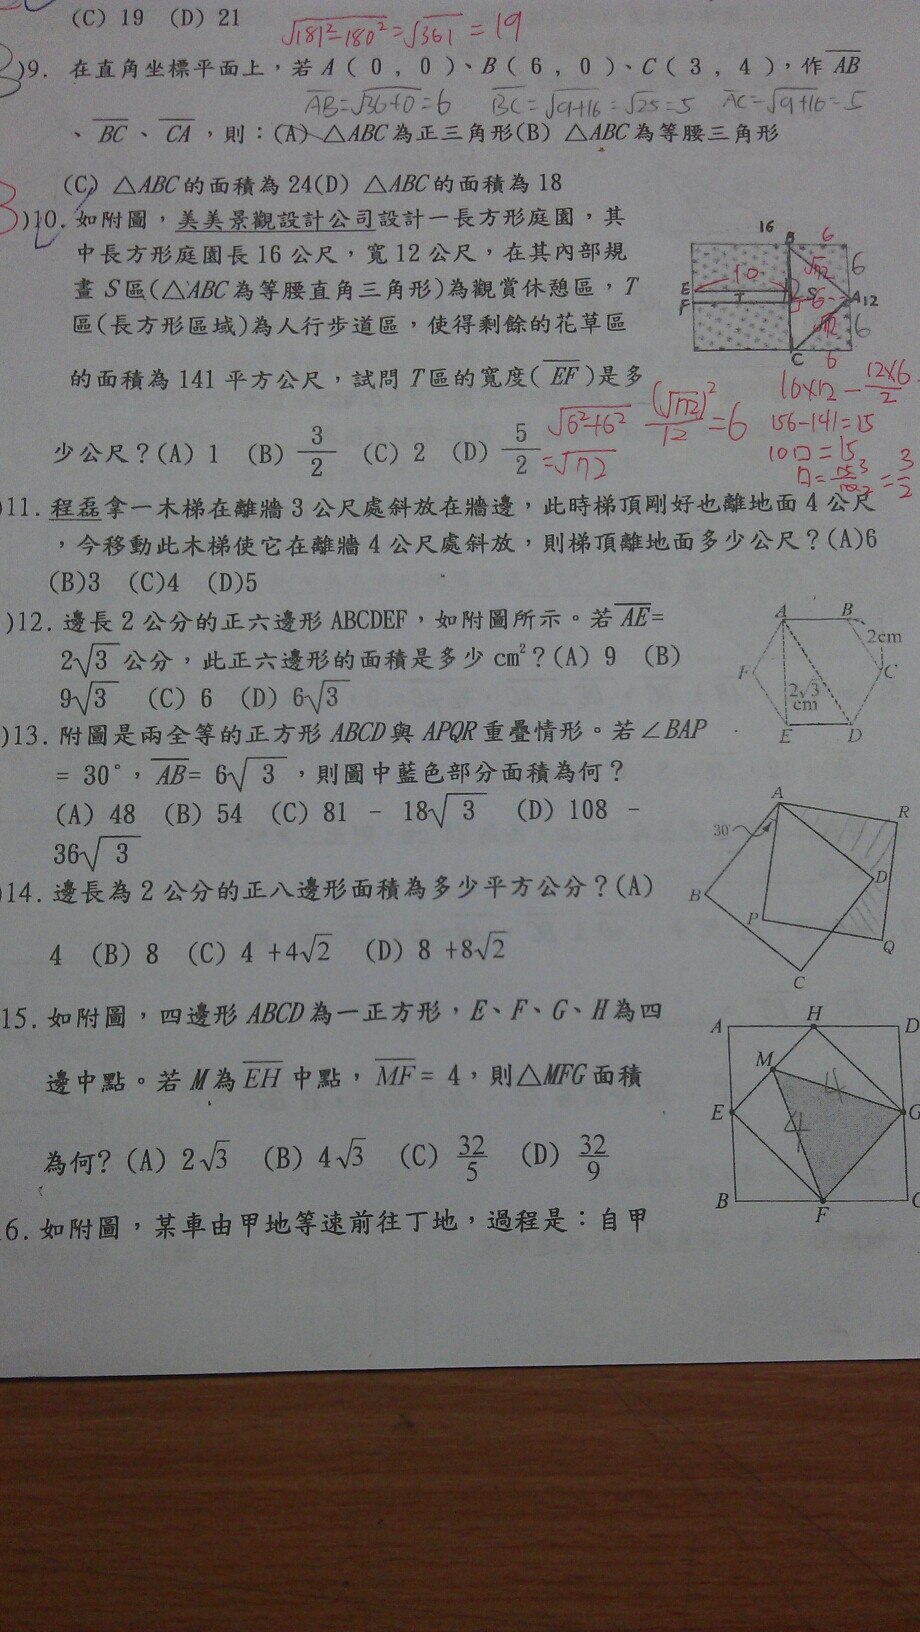 (C) 19 (D) 21
√181²-180² = √361 = 19
)9. 在直角坐標平面上，若 A ( 0 , 0 )、B ( 6 , 0 )、C ( 3 , 4 )，作 AB
AB=√36+0=6 BC=√9+16=√25=5 AC=√9+16=5
、BC、CA，則：(A) △ABC 為正三角形(B) △ABC 為等腰三角形
(C) △ABC 的面積為 24(D) △ABC 的面積為 18
)10. 如附圖，美美景觀設計公司設計一長方形庭園，其
中長方形庭園長 16 公尺，寬 12 公尺，在其內部規
畫 S 區(△ABC 為等腰直角三角形)為觀賞休憩區，T
區(長方形區域)為人行步道區，使得剩餘的花草區
的面積為 141 平方公尺，試問 T 區的寬度( EF )是多
少公尺？(A) 1 (B) 3/2 (C) 2 (D) 5/2
16 B 6
6
√72
E 10 S 6 A 12
F T
√72 6
C 6
√6²+6² =√72
(√72)²/12 =6
16×12 - 12×6/2
156-141=15
10□=15
□=15/10=3/2
)11. 程磊拿一木梯在離牆 3 公尺處斜放在牆邊，此時梯頂剛好也離地面 4 公尺
，今移動此木梯使它在離牆 4 公尺處斜放，則梯頂離地面多少公尺？(A)6
(B)3 (C)4 (D)5
)12. 邊長 2 公分的正六邊形 ABCDEF，如附圖所示。若 AE=
2√3 公分，此正六邊形的面積是多少 cm²？(A) 9 (B)
9√3 (C) 6 (D) 6√3
A B
2cm
F C
2√3
cm
E D
)13. 附圖是兩全等的正方形 ABCD 與 APQR 重疊情形。若∠BAP
= 30°，AB= 6√3，則圖中藍色部分面積為何？
(A) 48 (B) 54 (C) 81 - 18√3 (D) 108 -
36√3
A
R
30°
B D
P
Q
C
)14. 邊長為 2 公分的正八邊形面積為多少平方公分？(A)
4 (B) 8 (C) 4 +4√2 (D) 8 +8√2
15. 如附圖，四邊形 ABCD 為一正方形，E、F、G、H 為四
邊中點。若 M 為 EH 中點，MF = 4，則△MFG 面積
為何? (A) 2√3 (B) 4√3 (C) 32/5 (D) 32/9
A H D
M 4
E 4 G
B F C
6. 如附圖，某車由甲地等速前往丁地，過程是：自甲